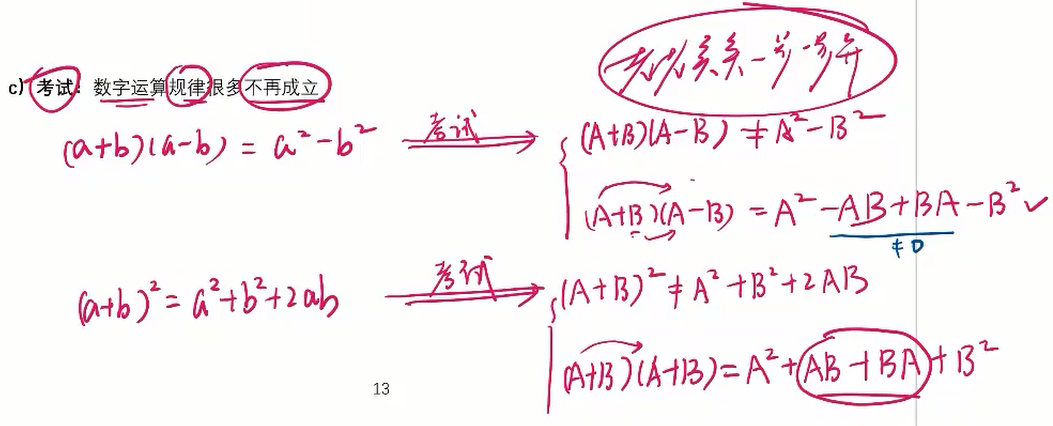 老老实实一步一步算
c) 考试：数字运算规律很多不再成立
(a+b)(a-b) = a²-b² 考试 (A+B)(A-B) ≠ A²-B²
(A+B)(A-B) = A²-AB+BA-B² ✓
≠0
(a+b)² = a²+b²+2ab 考试 (A+B)² ≠ A²+B²+2AB
(A+B)(A+B) = A²+AB+BA+B²
13